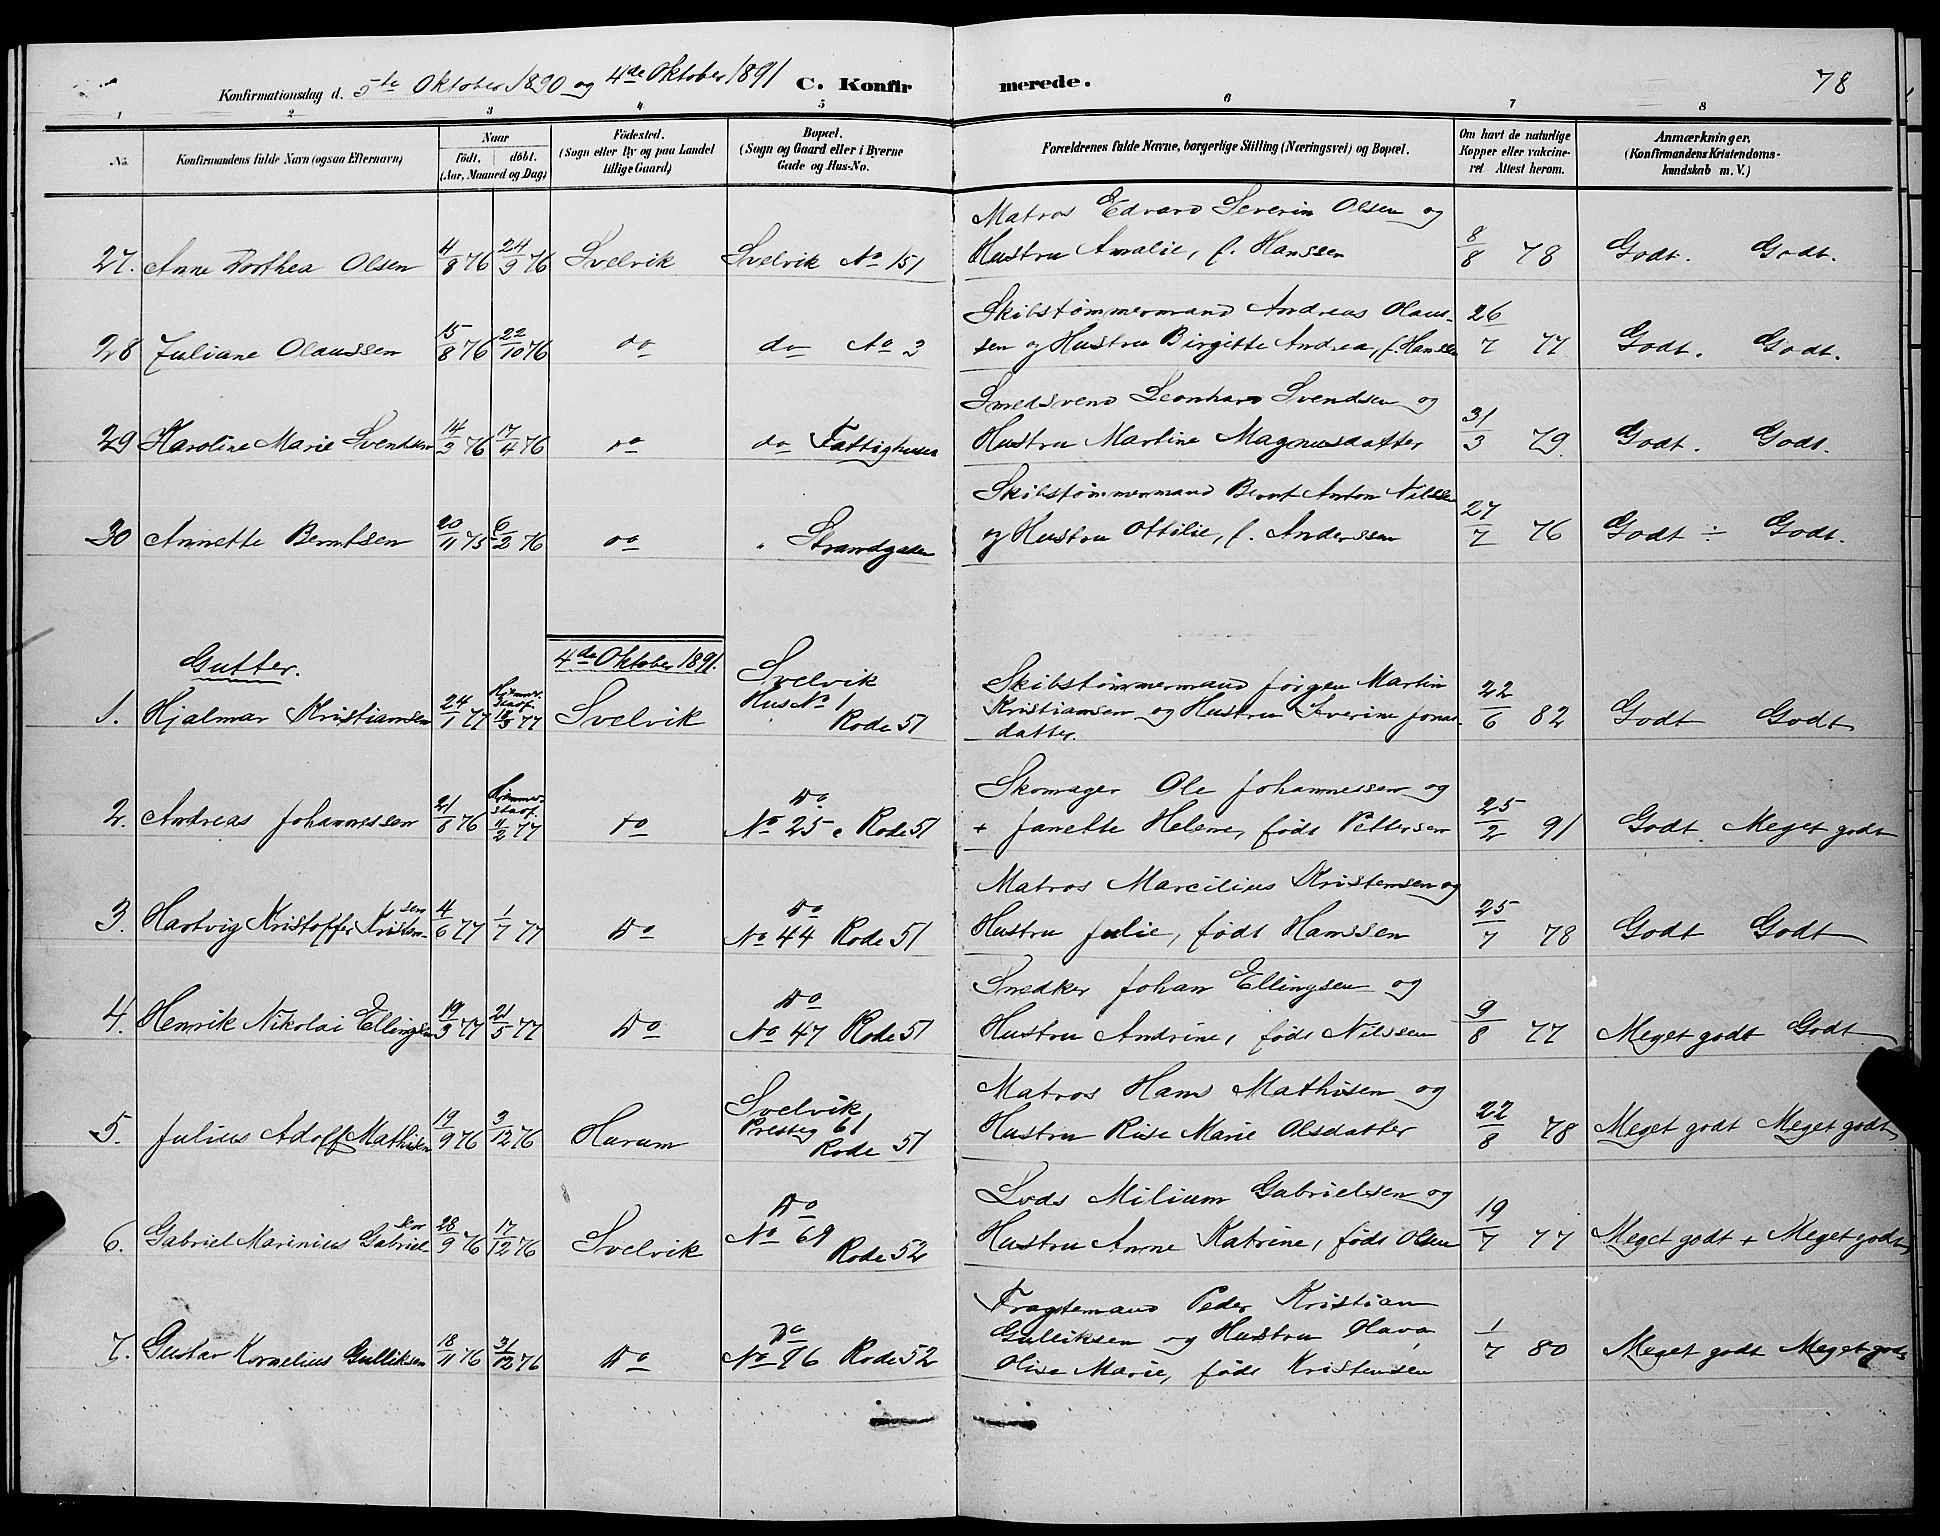 Konfirmationsdag d. 5te Oktober 1890 og 4de Oktober 1891 C. Konfirmerede. 78
1 2 3 4 5 6 7 8
No. Konfirmandens fulde Navn (ogsaa Efternavn) Naar født. døbt. (Aar, Maaned og Dag) Fødested. (Sogn eller By og paa Landet tillige Gaard) Bopæl. (Sogn og Gaard eller i Byerne Gade og Hus-No. Forældrenes fulde Navne, borgerlige Stilling (Næringsvei) og Bopæl. Om havt de naturlige Kopper eller vakcineret Attest herom. Anmærkninger, (Konfirmandens Kristendomskundskab m. V.)
Matros Edvard Severin Olsen og
27. Anne Dorthea Olsen 4/8 76 24/9 76 Svelvik Svelvik No 151 Hustru Amalie, f. Hanssen 8/8 78 Godt. Godt.
Skibstømmermand Andreas Olaus-
28 Juliane Olaussen 15/8 76 22/10 76 do do No 3 sen og Hustru Birgitte Andrea, f. Hanssen 26/7 77 Godt. Godt.
Smedsvend Leonhard Svendsen og
29 Karoline Marie Svendsen 14/3 76 17/4 76 do do Fattighuset Hustru Martine Magnusdatter 31/3 79. Godt. Godt.
Skibstømmermand Bernt Anton Nilssen
30 Annette Berntsen 20/11 75 6/2 76 do " Strandgaden og Hustru Ottilie, f. Anderssen 27/7 76 Godt ÷ Godt.
4de Oktober 1891.
Gutter.
Svelvik
Skibstømmermand Jørgen Martin
1. Hjalmar Kristiansen 24/1 77 Hjemmedøbt 18/3 77 Svelvik Hus No 1 Rode 51 Kristiansen og Hustru Severine Jonas- 22/6 82 Godt Godt
datter.
do Skomager Ole Johannessen og
2. Andreas Johannessen 21/8 76 11/2 77 do No 25 c Rode 51 + Janette Helene, født Pettersen 25/2 91 Godt. Meget godt
do Matros Marcilius Kristensen og
3. Hartvig Kristoffer Kristensen 4/6 77 1/7 77 Do No 44 Rode 51 Hustru Julie, født Hanssen 25/7 78 Godt Godt
Do Snedker Johan Ellingsen og
4. Henrik Nikolai Ellingsen 19/3 77 21/5 77 Do No 47 Rode 51 Hustru Andrine, født Nilssen 9/8 77 Meget godt Godt
Svelvik Matros Hans Mathisen og
5. Julius Adolf Mathisen 19/9 76 3/12 76 Hurum Presteg 61 Rode 51 Hustru Rise Marie Olsdatter 22/8 78 Meget godt Meget godt
Do Lods Milium Gabrielsen og
6. Gabriel Marinius Gabrielsen 28/9 76 17/12 76 Svelvik No 69 Rode 52 Hustru Anne Katrine, født Olsen 19/7 77 Meget godt + Meget godt
Fragtemand Peder Kristian
7. Gustav Kornelius Gulliksen 18/11 76 31/12 76 Do Do No 96 Rode 52 Gulliksen og Hustru Olava 1/7 80 Meget godt Meget godt
Olise Marie, født Kristensen